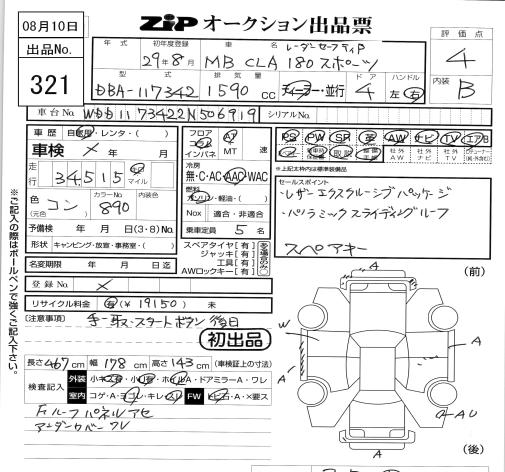 08月10日
ZiP オークション出品票
出品No.
321
評価点
4
内装
B
年式
初年度登録
29年8月
車名
レーダーセーフティP
MB CLA 180 スポーツ
型式
DBA-117342
排気量
1590 cc
ディーラー・並行
ドア
4
ハンドル
左右
車台No. WDD1173422N506919
シリアルNo.
車歴 自家用・レンタ・( )
車検 ×年 月
走行 34,515 マイル
色(元色) コン
カラーNo. 890
内装色
予備検 年 月 日(3・8)No.
形状 キャンピング・放宣・事務室・( )
名変期限 年 月 日迄
登録No. ×
フロア コラム インパネ
AT MT 速
冷房 無・C・AC・AAC・WAC
燃料 ガソリン・軽油・( )
Nox 適合・非適合
乗車定員 5 名
スペアタイヤ[有]
ジャッキ[有]
工具[有]
AWロックキー[有]
PS PW SR 革 AW ナビ TV エアB
社外AW 社外ナビ 社外TV
※上記太枠内は標準装備品
セールスポイント
・レザーエクスクルーシブパッケージ
・パノラミックスライディングルーフ
スペアキー
リサイクル料金 有(¥19150) 未
(注意事項)
手・取・スタートボタン後日
初出品
長さ467cm 幅178cm 高さ143cm (車検証上の寸法)
検査記入
外装 小キズ春・小凹春・ホイルA・ドアミラーA・ワレ
室内 コゲ・A・ヨゴレ・キレ・スレ FW トビ石・A・×要ス
Fルーフパネルアセ
アンダーカバーワレ
※ご記入の際はボールペンで強くご記入下さい。
(前)
A
A
W
A
A
A
AU
A
(後)